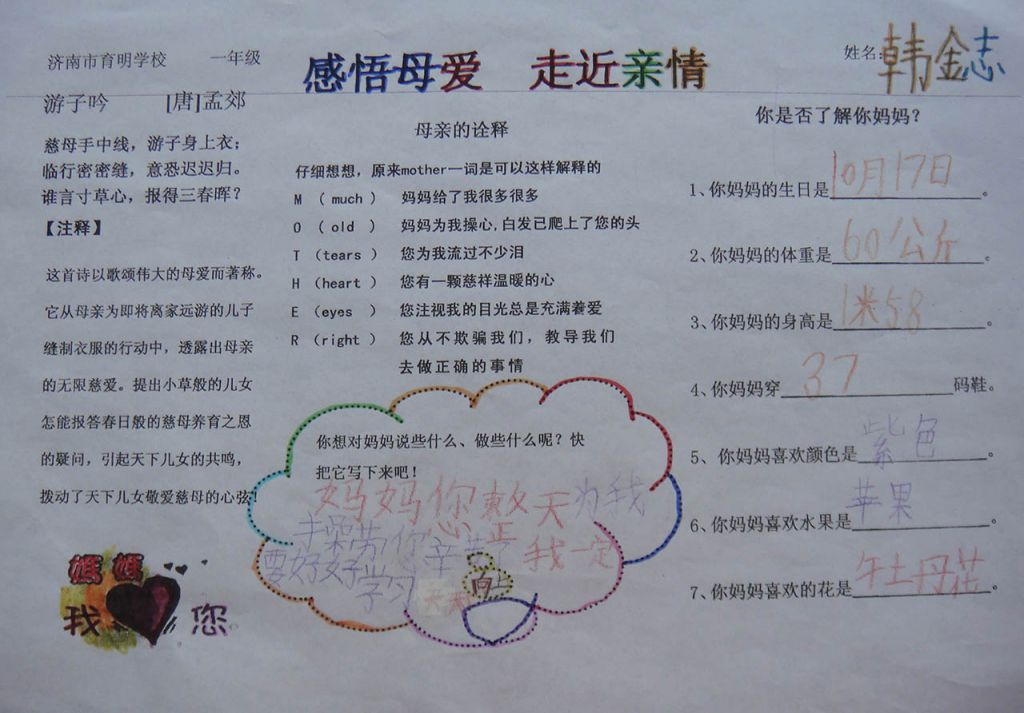 济南市育明学校 一年级
感悟母爱 走近亲情
姓名:韩金志
游子吟 [唐]孟郊
慈母手中线，游子身上衣；
临行密密缝，意恐迟迟归。
谁言寸草心，报得三春晖？
【注释】
这首诗以歌颂伟大的母爱而著称。
它从母亲为即将离家远游的儿子
缝制衣服的行动中，透露出母亲
的无限慈爱。提出小草般的儿女
怎能报答春日般的慈母养育之恩
的疑问，引起天下儿女的共鸣，
拨动了天下儿女敬爱慈母的心弦!
媽媽
我 您
母亲的诠释
仔细想想，原来mother一词是可以这样解释的
M （ much ） 妈妈给了我很多很多
O （ old ） 妈妈为我操心,白发已爬上了您的头
T （tears ） 您为我流过不少泪
H （heart ） 您有一颗慈祥温暖的心
E （eyes ） 您注视我的目光总是充满着爱
R （right ） 您从不欺骗我们，教导我们
去做正确的事情
你想对妈妈说些什么、做些什么呢？快
把它写下来吧！
妈妈你敕天为我
你辛苦了我一定
要好好学习天天向上
你是否了解你妈妈？
1、你妈妈的生日是10月17日。
2、你妈妈的体重是60公斤。
3、你妈妈的身高是1米58。
4、你妈妈穿37码鞋。
5、你妈妈喜欢颜色是紫色。
6、你妈妈喜欢水果是苹果。
7、你妈妈喜欢的花是午土丹花。